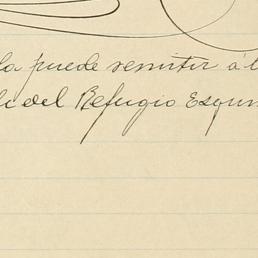 la puede remitir á l
del Refugio Esqui